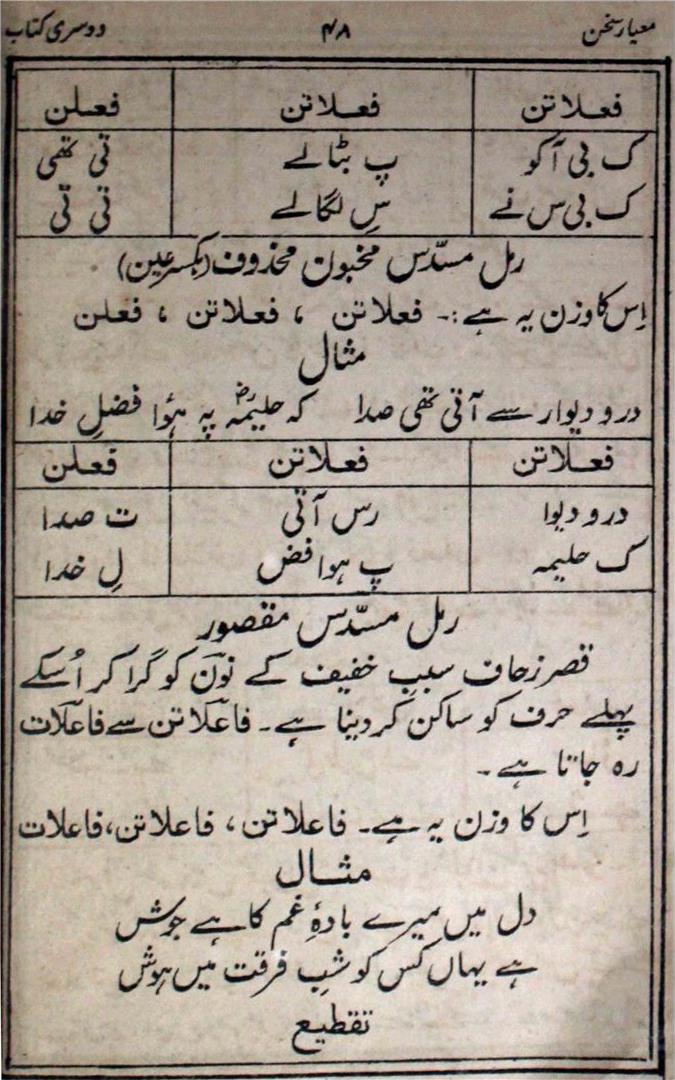 معیار سخن ۴۸ دوسری کتاب
فعلاتن فعلاتن فعلن
ک بی آکو پ بٹالے تی تھی
ک بی س نے سِ لگالے تی تی
رمل مسدّس مخبون محذوف (بکسر عین)
اِس کا وزن یہ ہے:۔ فعلاتن ، فعلاتن ، فعلن
مثال
در و دیوار سے آتی تھی صدا کہ حلیمہؓ پہ ہؤا فضلِ خدا
فعلاتن فعلاتن فعلن
در و دیوا رس آتی ت صدا
ک حلیمہ پ ہوا فض لِ خدا
رمل مسدّس مقصور
قصر زحاف سببِ خفیف کے نون کو گرا کر اُسکے
پہلے حرف کو ساکن کر دینا ہے۔ فاعلاتن سے فاعلات
رہ جاتا ہے۔
اِس کا وزن یہ ہے۔ فاعلاتن، فاعلاتن، فاعلات
مثال
دل میں میرے بادۂِ غم کا ہے جوش
ہے یہاں کس کو شبِ فرقت میں ہوش
تقطیع